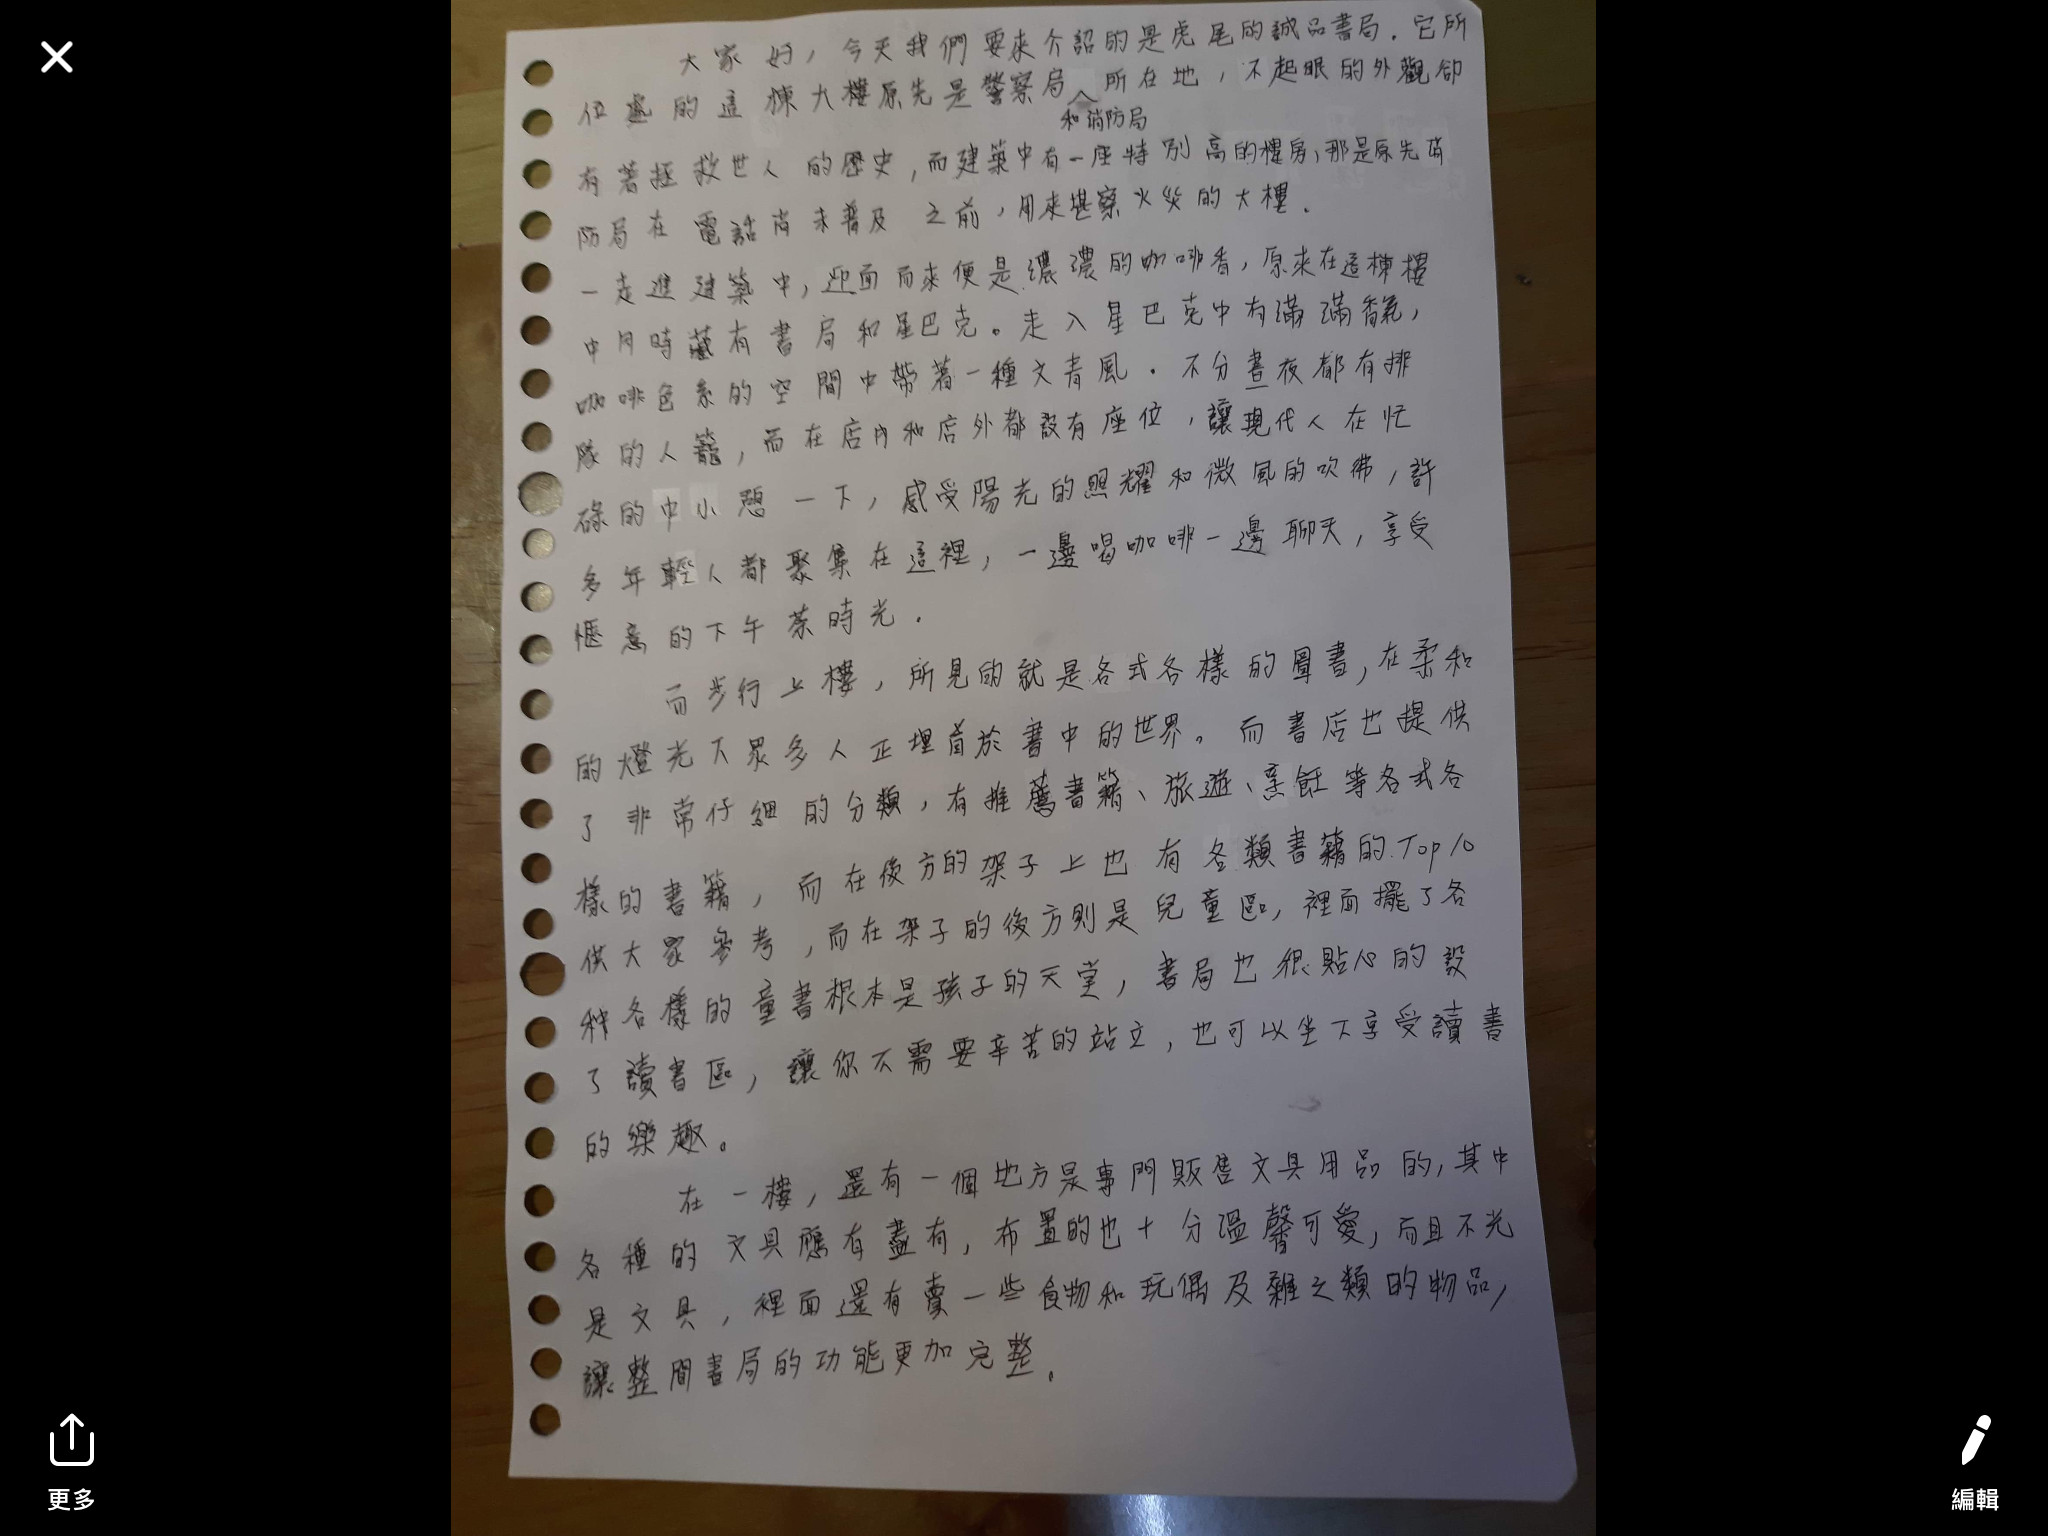 大家好，今天我們要來介詔的是虎尾的誠品書局．它所
位處的這棟大樓原先是警察局所在地，不起眼的外觀卻
和消防局
有著拯救世人的歷史，而建築中有一座特別高的樓房，那是原先消
防局在電話尚未普及之前，用來堪察火災的大樓．
一走進建築中，迎面而來便是濃濃的咖啡香，原來在這棟樓
中同時藏有書局和星巴克。走入星巴克中有滿滿香氣，
咖啡色系的空間中帶著一種文青風．不分晝夜都有排
隊的人龍，而在店內和店外都設有座位，讓現代人在忙
碌的中小憩一下，感受陽光的照耀和微風的吹彿，許
多年輕人都聚集在這裡，一邊喝咖啡一邊聊天，享受
愜意的下午茶時光．
而步行上樓，所見的就是各式各樣的圖書，在柔和
的燈光下眾多人正埋首於書中的世界。而書店也提供
了非常仔細的分類，有推薦書籍、旅遊、烹飪等各式各
樣的書籍，而在後方的架子上也有各類書籍的Top10
供大家參考，而在架子的後方則是兒童區，裡面擺了各
種各樣的童書根本是孩子的天堂，書局也很貼心的設
了讀書區，讓你不需要辛苦的站立，也可以坐下享受讀書
的樂趣。
在一樓，還有一個地方是專門販售文具用品的，其中
各種的文具應有盡有，布置的也十分溫馨可愛，而且不光
是文具，裡面還有賣一些食物和玩偶及雜之類的物品，
讓整間書局的功能更加完整．
更多
編輯